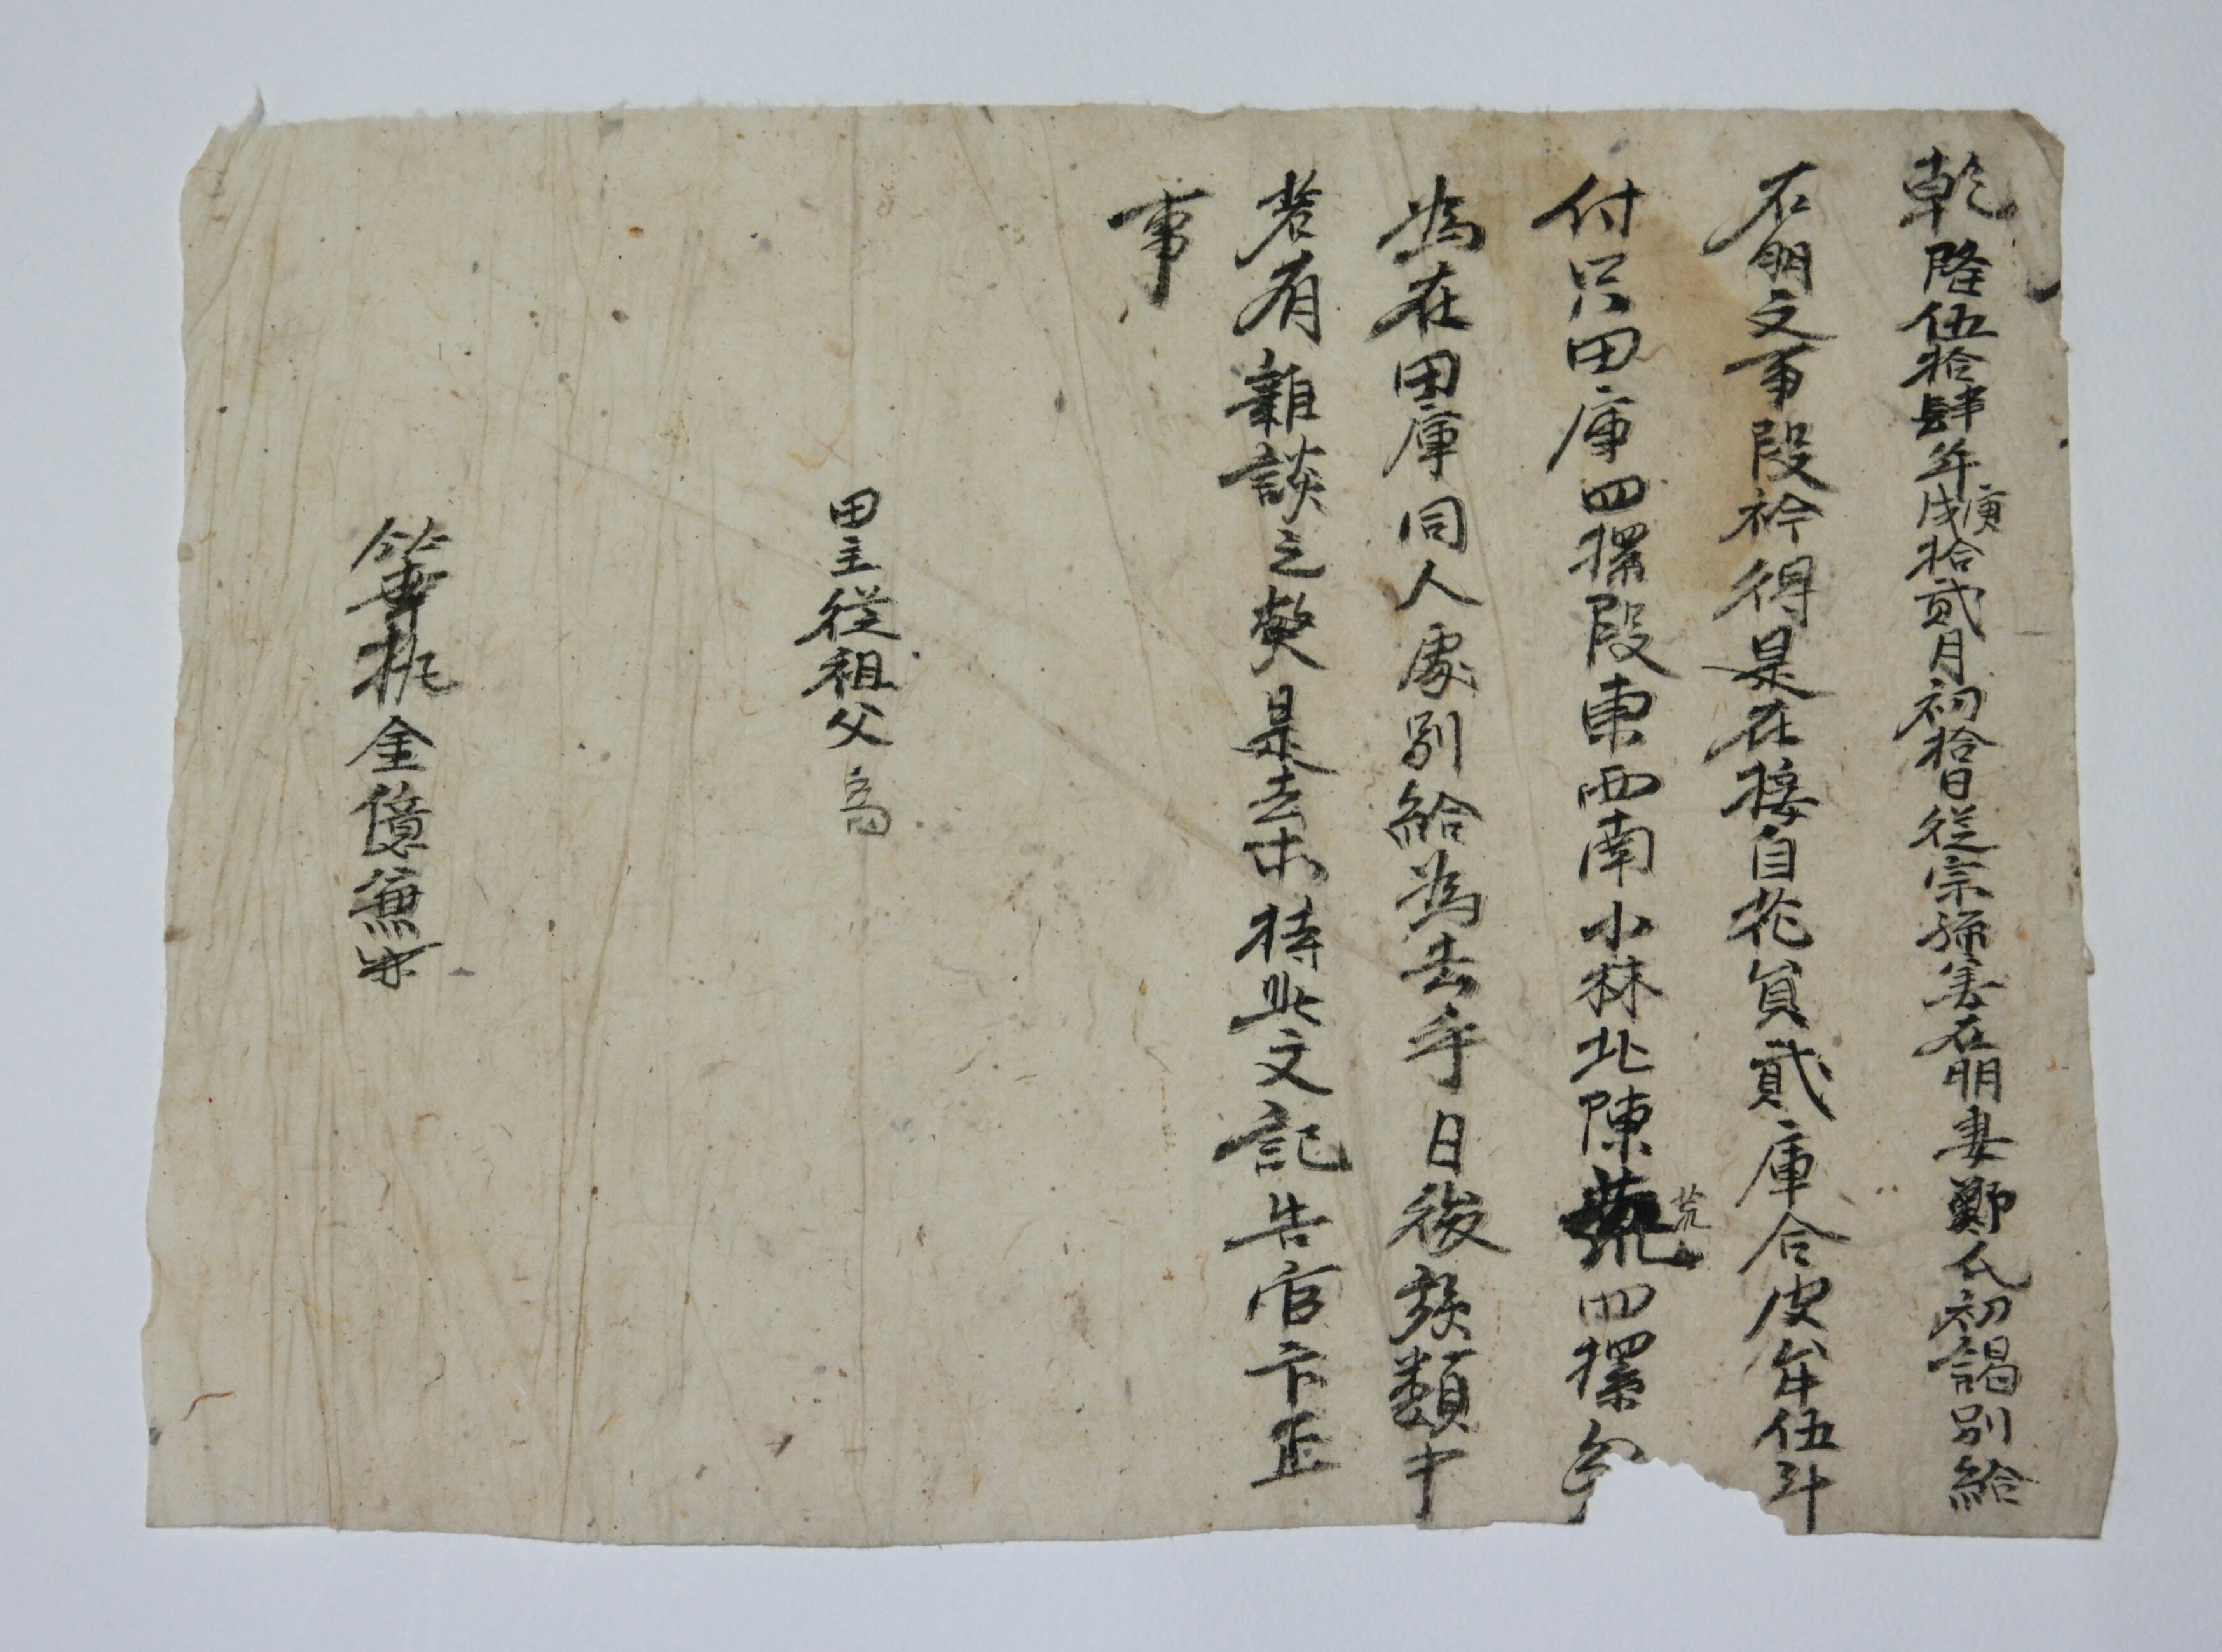 乾隆伍拾肆年庚戌拾貳月初拾日從宗孫姜在明妻鄭氏初謁別給
右明文事段衿得是在接自花員貳庫合皮牟伍斗
付只田庫四㹻段東西南小林北陳荒四㹻
為在田庫同人處別給為去乎日後族類中
若有雜談之弊是去木持此文記告官卞正
事
田主從祖父高
筆執金億兼